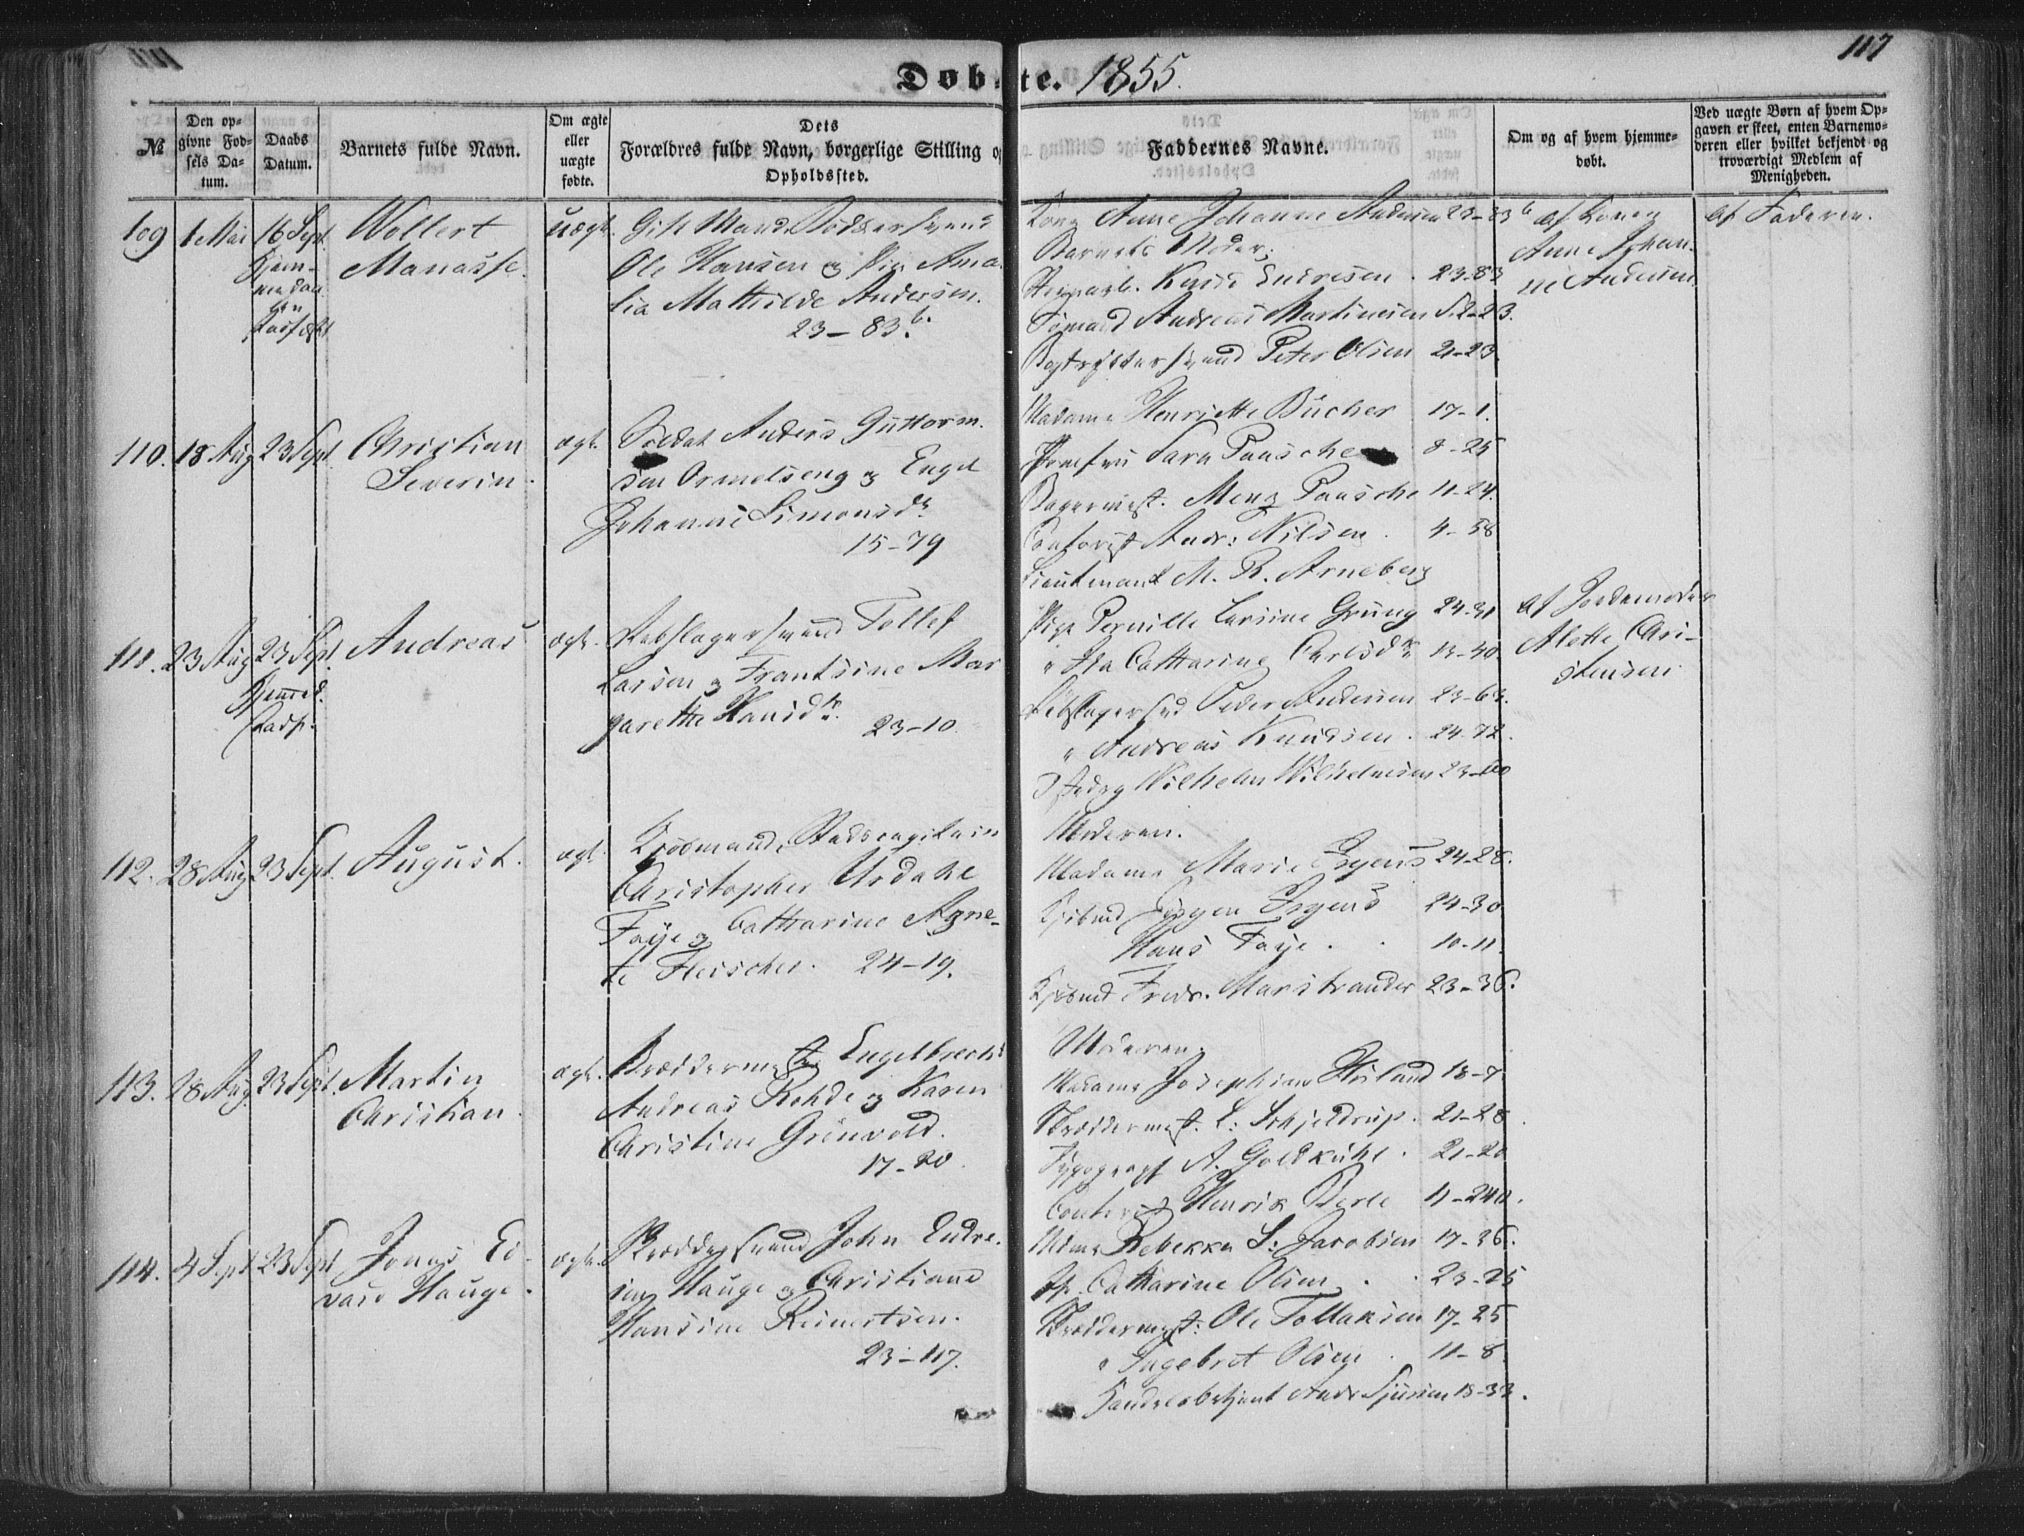 117
Døbte. 1855.
№
Den opgivne Fødsels Datum.
Daabs Datum.
Barnets fulde Navn.
Om ægte eller uægte fødte.
Dets Forældres fulde Navn, borgerlige Stilling og Opholdssted.
Faddernes Navne.
Om og af hvem hjemmedøbt.
Ved uægte Børn af hvem Opgaven er skeet, enten Barnemoderen eller hvilket bekjendt og troværdigt Medlem af Menigheden.
109 1 Mai 16 Sept. Wollert uægt. Gift Mand
Manasse. Ole Hansen og Pige Ama-
lia Mathilde Andersen.
23-83 b.
Kone Anne Johanne Andersen 23-83 b
Barnets Moder.
Knud Endresen 23-83
Sømand Andreas Martinesen 2-23.
Peter Olsen 2-23.
af Konen
Anne Johan-
ne Andersen
af Faderen.
110. 18 Aug 23 Sept. Christian ægt. Soldat Anders Guttorm-
Severin. sen Ormelseng og Engel
Johanne Simonsdr
15-79
Madame Henriette Bücher 17-1.
Jomfru Sara Pausche 8-25
Bagermest. Menz Pausche 11-24.
Contorist Andr: Nilsen. 4-58
Lieutenant M. R. Arneberg
111. 23 Aug 23 Sept. Andreas ægt. Rebslagersvend Tollef
Hjemmed. Larsen og Frantsine Mar-
Stadf. garethe Hansdr. 23-10.
Pige Pernille Larsine Grung 24-31
" Ida Catharine Carlsdr 13-40.
Rebslagersvd Peder Andersen 23-63.
" Andreas Knudsen. 24-72.
Wilhelm Wilhelmsen 23-10
af Jordemoder
Alette Chri-
stensen
112. 28 Aug 23 Sept. August. ægt. Kjøbmand, Stadscapitain
Christopher Urdahl
Faye og Catharine Agne-
te Fleischer. 24-19.
Moderen.
Madame Marie Irgens 24-28.
Kjøbmd Jørgen Irgens 24-30
Hans Faye. 10-11.
Kjøbmd Fredr. Marstrander 23-36.
113. 28 Aug. 23 Sept. Martin ægt. Skræddermester Engelbrecht
Christian. Andreas Rohde og Karen
Christine Grünvold.
17-20.
Moderen.
Madame Josephine 18-7
Skræddermest. L: Schjeldrup. 21-28.
Typograph A. Goldkuhl. 21-20
Contorist Henrik Berle 11-240.
114. 4 Sept 23 Sept Jonas Ed- ægt. Skræddersvend John Endre-
vard Hauge. sen Hauge og Christiane
Hansine Reinertsen.
23-117.
Mdme Rebekka S: Jacobsen 17-36.
Catharine Olsen. 23-25
Skræddermest: Ole Tollaksen 17-25
" Ingebret Olsen. 11-8.
Handelsbetjent Andr Sjursen 18-33.